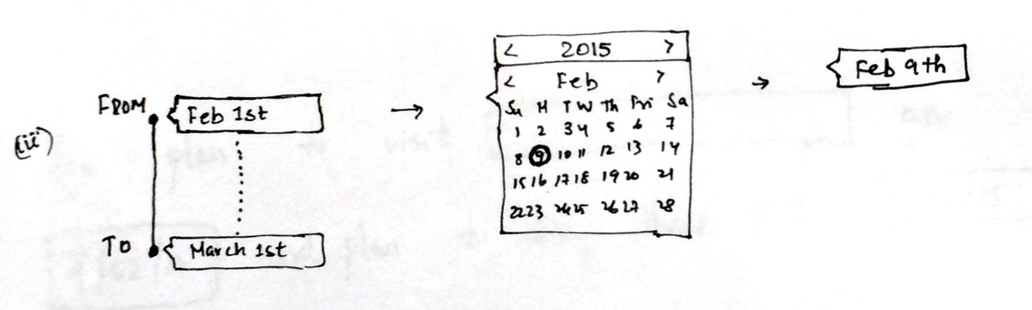 (ii)
FROM
Feb 1st
TO
March 1st
< 2015 >
< Feb >
Su M T W Th Fri Sa
1 2 3 4 5 6 7
8 9 10 11 12 13 14
15 16 17 18 19 20 21
22 23 24 25 26 27 28
Feb 9th